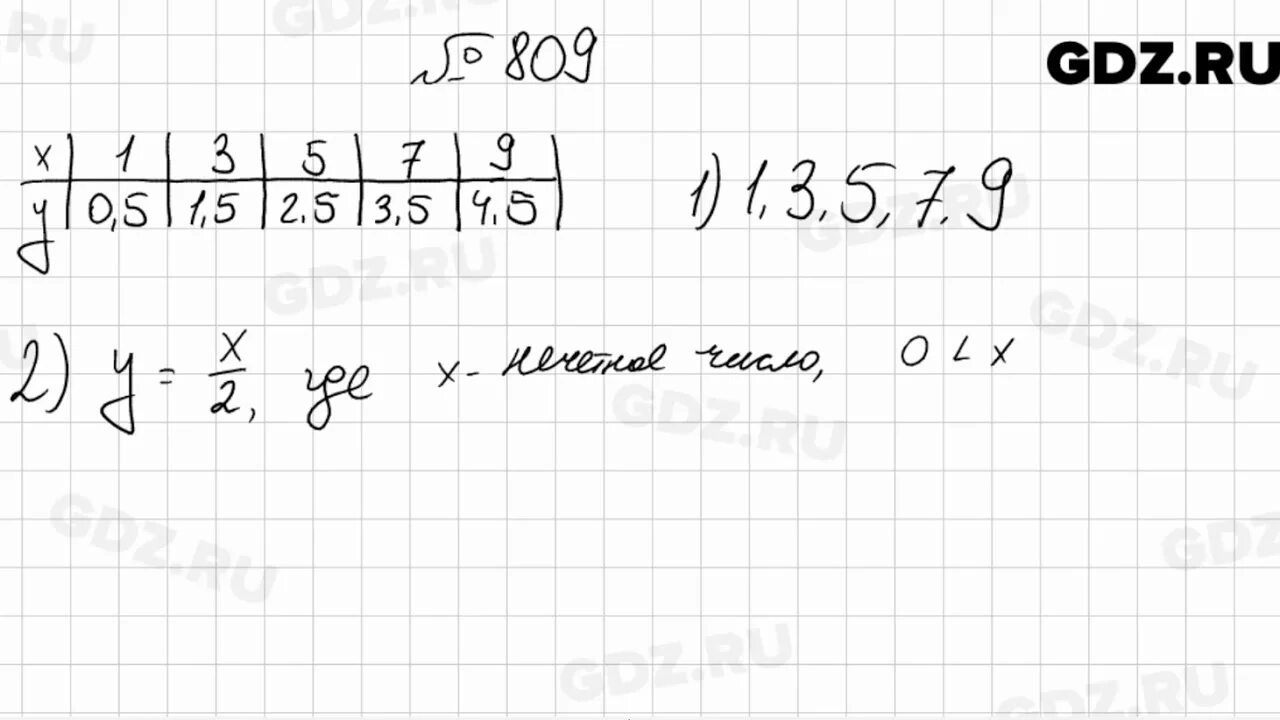 № 809
GDZ.RU
x | 1 | 3 | 5 | 7 | 9
y | 0,5 | 1,5 | 2,5 | 3,5 | 4,5
1) 1, 3, 5, 7, 9
2) y = x/2, где x - нечетное число, 0 < x